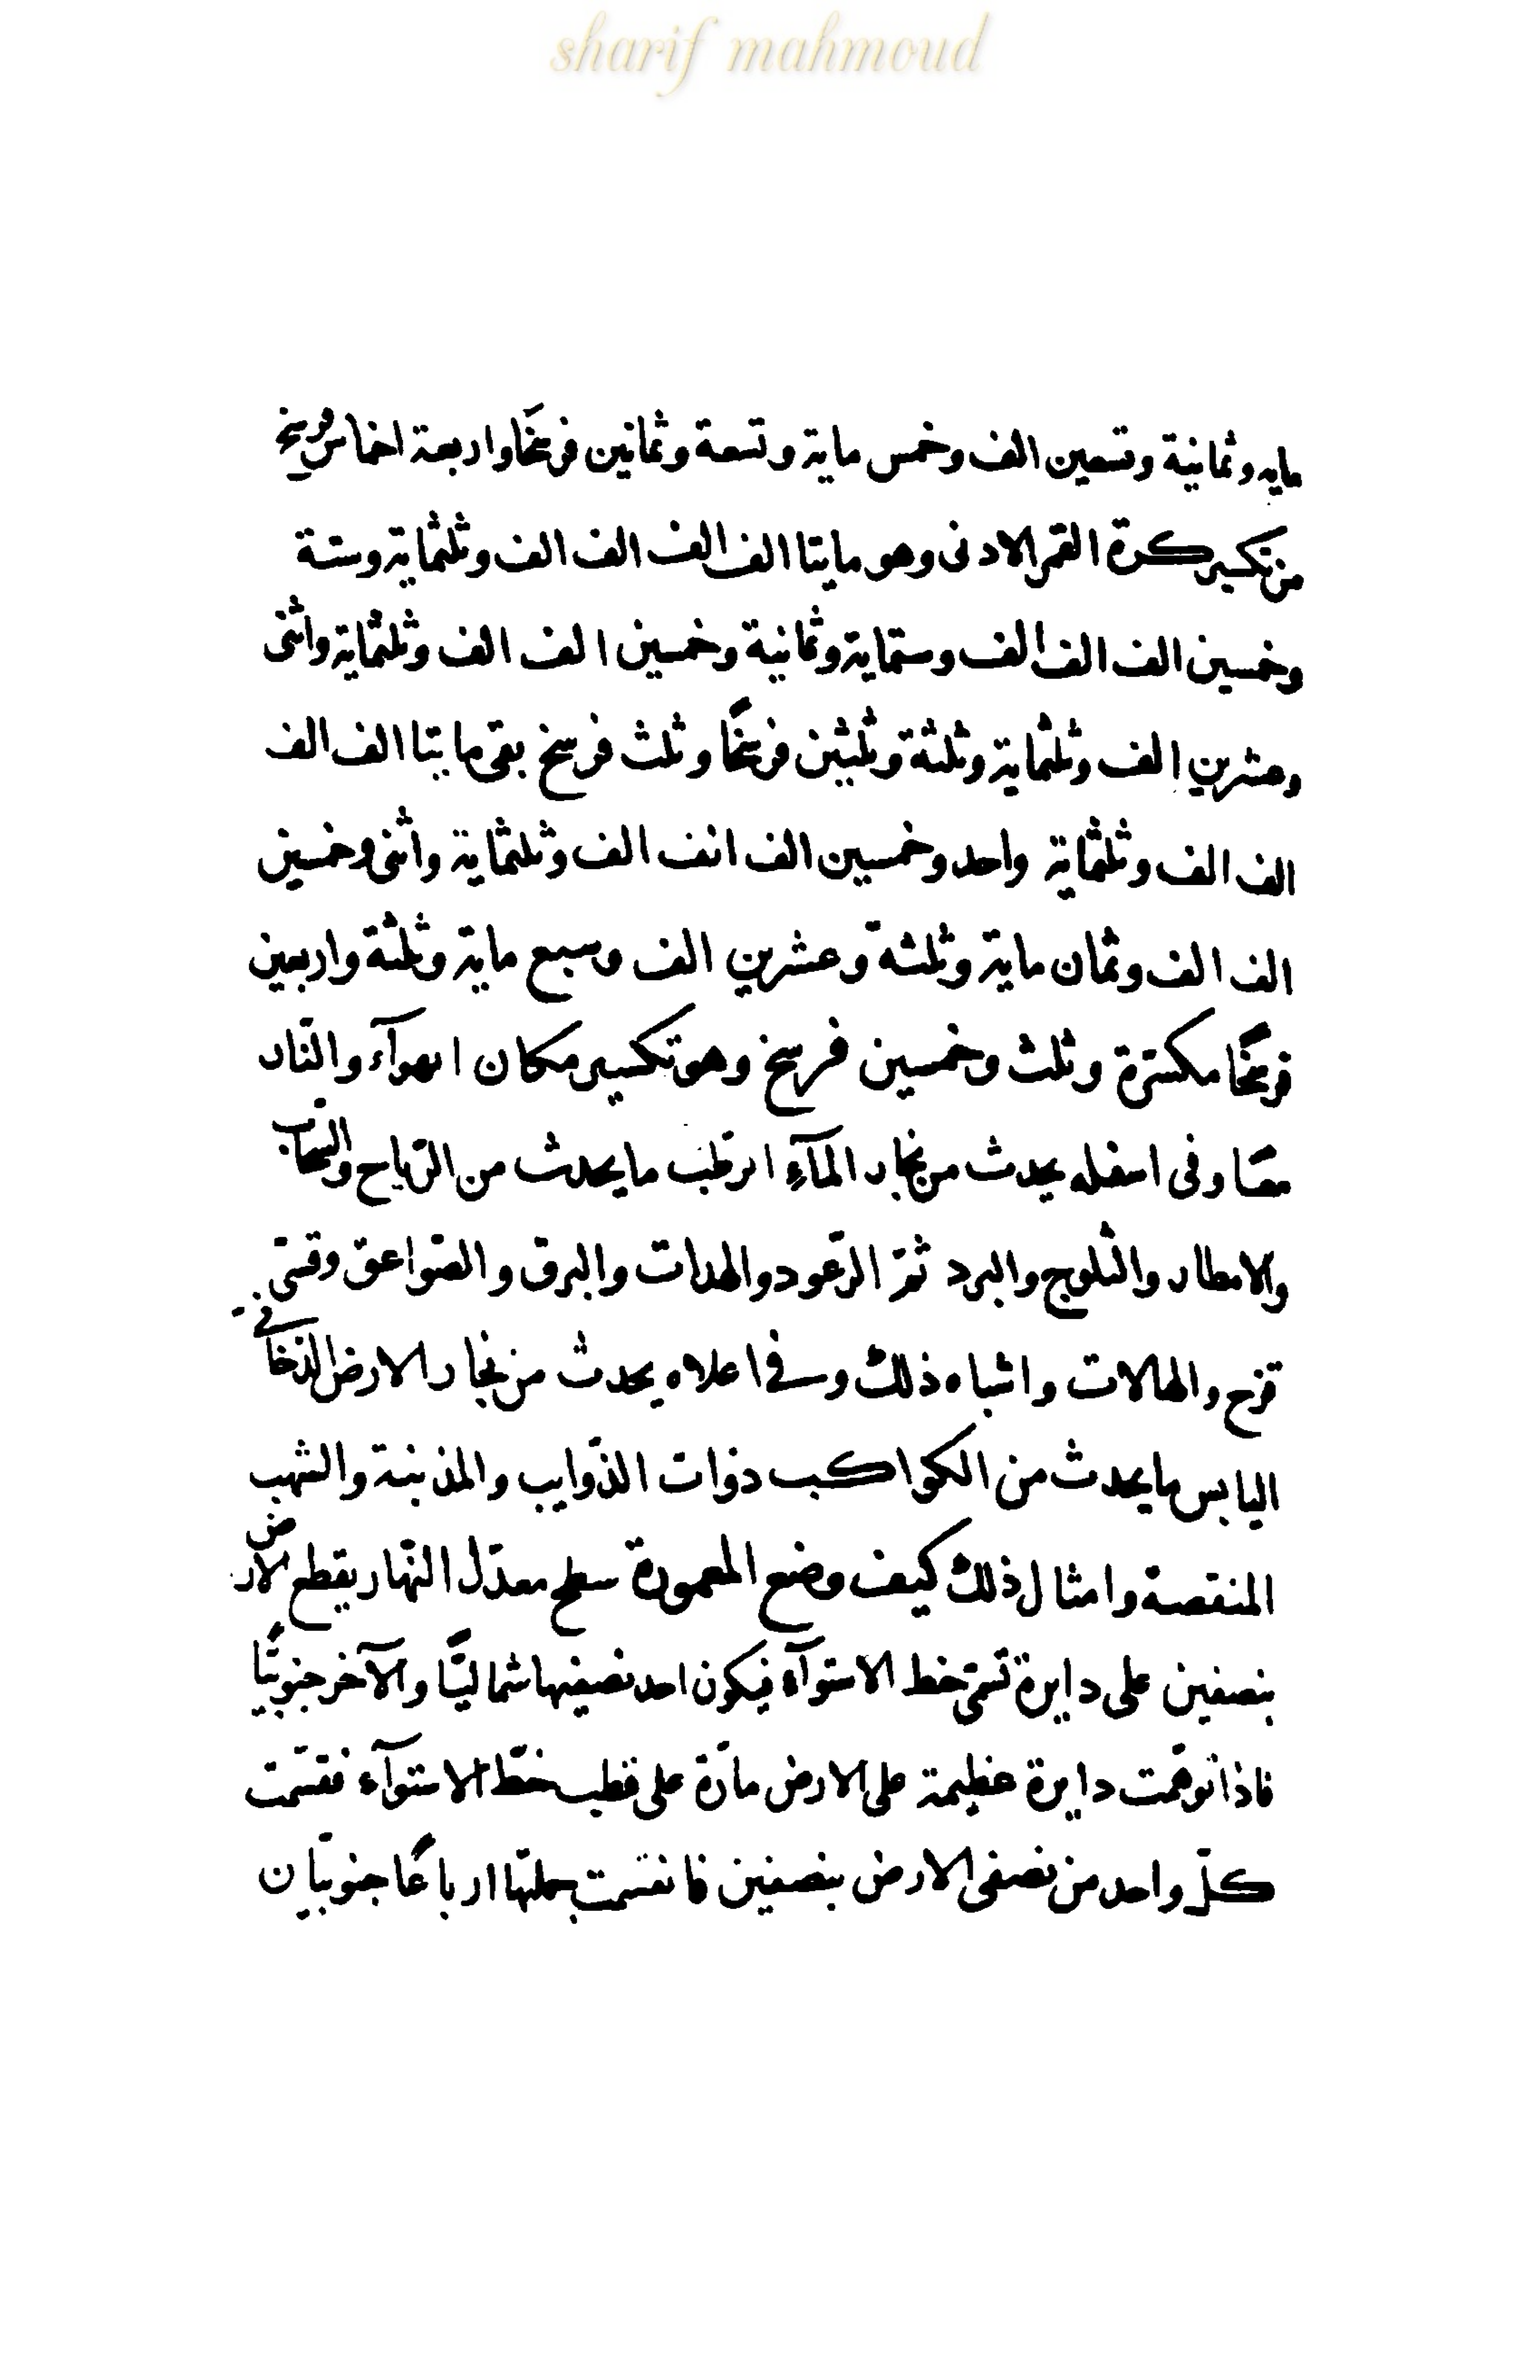 sharif mahmoud
مايه وثمانية وتسعين الف وخمس ماية وتسعة وثمانين فرسخًا واربعة اخماس فرسخ
من تكسير كرة القمر الادنى وهو مايتا الف الف الف الف وثلثماية وستة
وخمسين الف الف الف وستماية وثمانية وخمسين الف الف وثلثماية واثنى
وعشرين الف وثلثماية وثلثة وثلثين فرسخًا وثلث فرسخ بقى مايتا الف الف
الف الف وثلثماية واحد وخمسين الف الف الف وثلثماية واثنى وخمسين
الف الف وثمان ماية وثلثة وعشرين الف وسبع ماية وثلثة واربعين
فرسخًا مكسّرة وثلث وخمسين فرسخ وهو تكسير مكان الهوآء والنّار
معًا وفى اسفله يحدث من بخار المآءِ الرّطب ما يحدث من الرّياح والسّحاب
والامطار والثلوج والبرد ثمّ الرّعود والهدات والبرق والصّواعق وقسىّ
قزح والهالات واشباه ذلك وفى اعلاه يحدث من بخار الارض الدّخانى
اليابس ما يحدث من الكواكب ذوات الذّوايب والمذنبة والشهب
المنقضة وامثال ذلك كيف وضع المعمورة سطح معدّل النّهار يقطع الارض
بنصفين على دايرة تسمّى خط الاستوآء فيكون احد نصفيها شماليًّا والآخر جنوبيًّا
فاذا توهّمت دايرة عظيمة على الارض مارّة على قطب خطّ الاستوآء فقسّمت
كلّ واحد من نصفى الارض بنصفين فانقسمت جملتها ارباعًا جنوبيّان